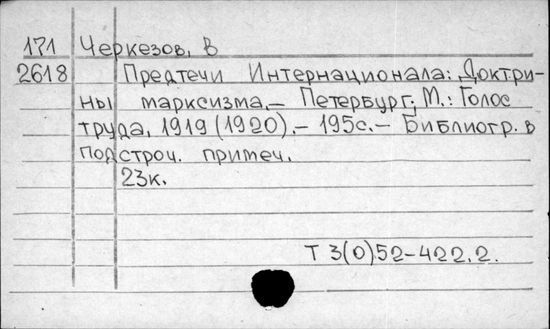 171 Черкезов, В
2618 Предтечи Интернационала: Доктри-
ны марксизма.— Петербург; М.: Голос
труда, 1919 (1920).— 195с.— Библиогр. в
подстроч. примеч.
23к.
Т 3(0)52-422.2.